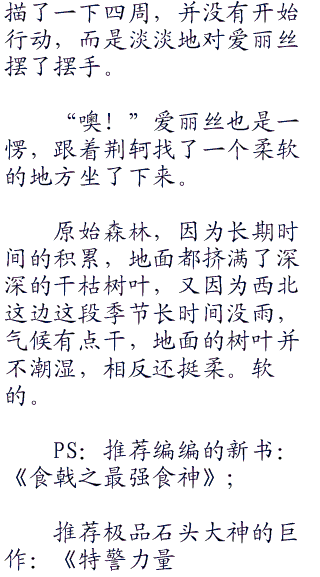 描了一下四周，并没有开始
行动，而是淡淡地对爱丽丝
摆了摆手。
“噢！”爱丽丝也是一
愣，跟着荆轲找了一个柔软
的地方坐了下来。
原始森林，因为长期时
间的积累，地面都挤满了深
深的干枯树叶，又因为西北
这边这段季节长时间没雨，
气候有点干，地面的树叶并
不潮湿，相反还挺柔。软
的。
PS：推荐编编的新书：
《食戟之最强食神》；
推荐极品石头大神的巨
作：《特警力量